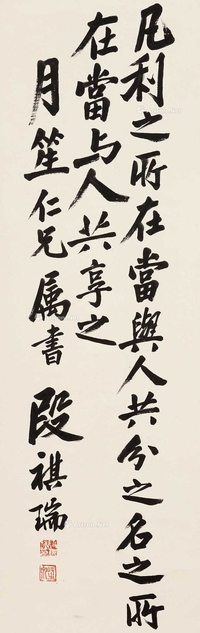 凡利之所在當與人共分之名之所
在當与人共享之
月笙仁兄属書
段祺瑞